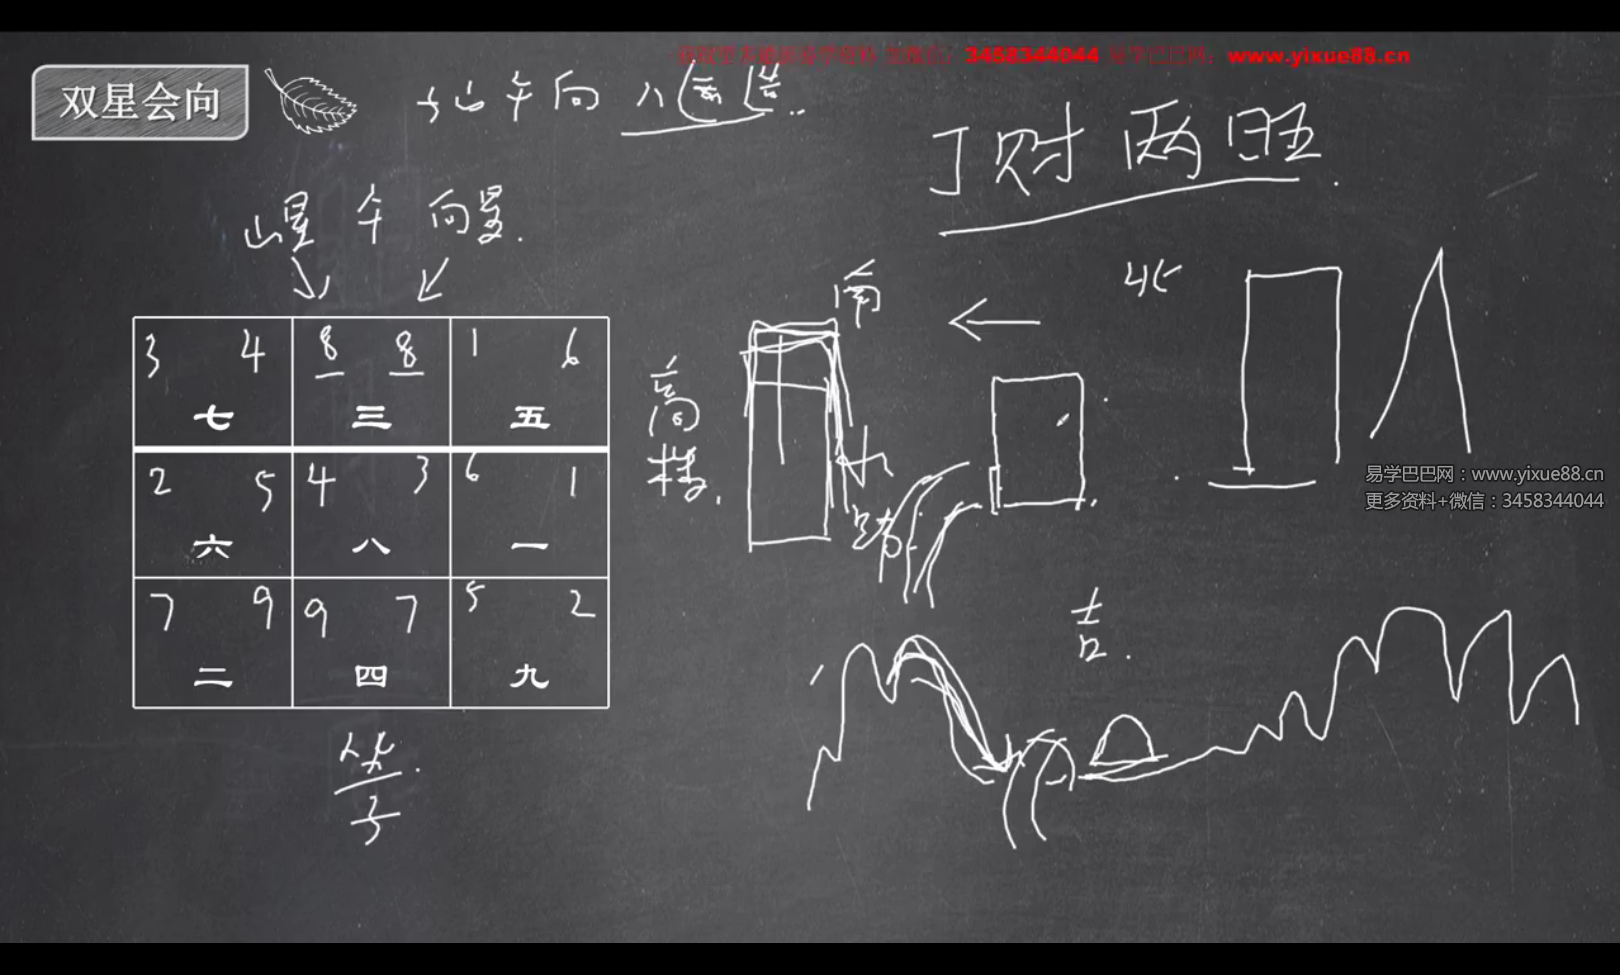 3458344044 易学巴巴网：www.yixue88.cn
双星会向
子山午向 八运
丁财两旺
山星 午 向星
南
北
3 4 8 8 1 6
七 三 五
高楼
2 5 4 3 6 1
六 八 一
水
路
易学巴巴网：www.yixue88.cn
更多资料+微信：3458344044
7 9 9 7 5 2
二 四 九
吉
坐
子